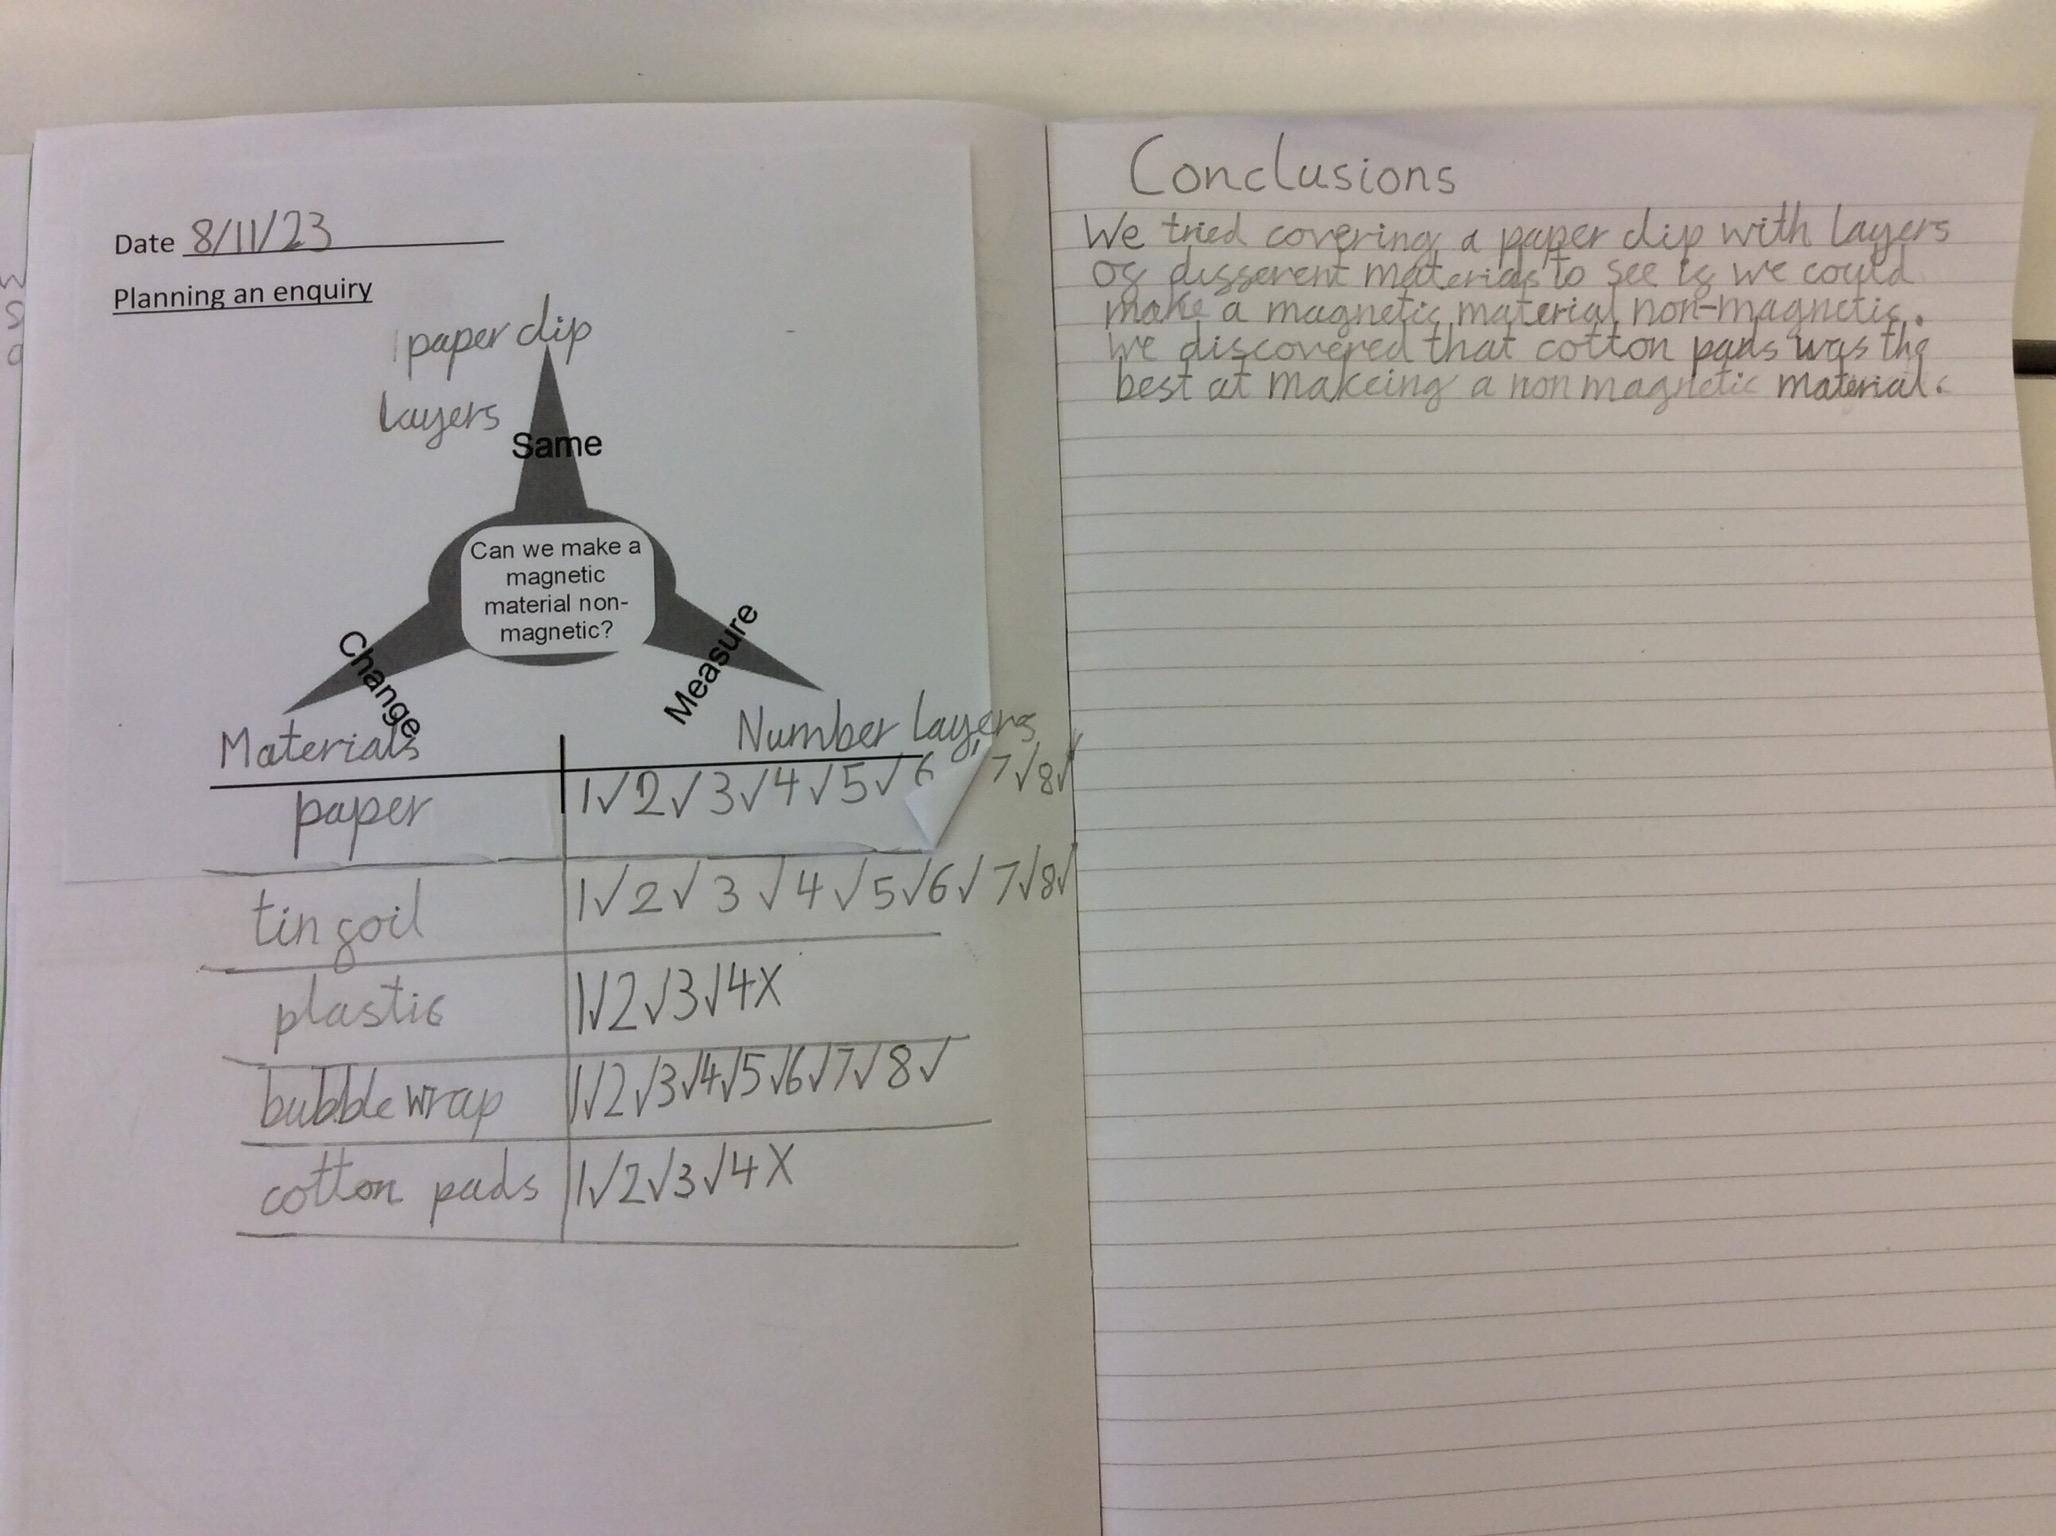 Date 8/11/23
Planning an enquiry
1 paper clip
layers
Same
Can we make a
magnetic
material non-
magnetic?
Change
Measure
Materials
Number layers
paper 1✓ 2✓ 3✓ 4✓ 5✓ 6 7✓ 8✓
tin foil 1✓ 2✓ 3✓ 4✓ 5✓ 6✓ 7✓ 8✓
plastic 1✓ 2✓ 3✓ 4X
bubble wrap 1✓ 2✓ 3✓ 4✓ 5✓ 6✓ 7✓ 8✓
cotton pads 1✓ 2✓ 3✓ 4X
Conclusions
We tried covering a paper clip with layers
of different materials to see if we could
make a magnetic material non-magnetic.
we discovered that cotton pads was the
best at makeing a non magnetic material.